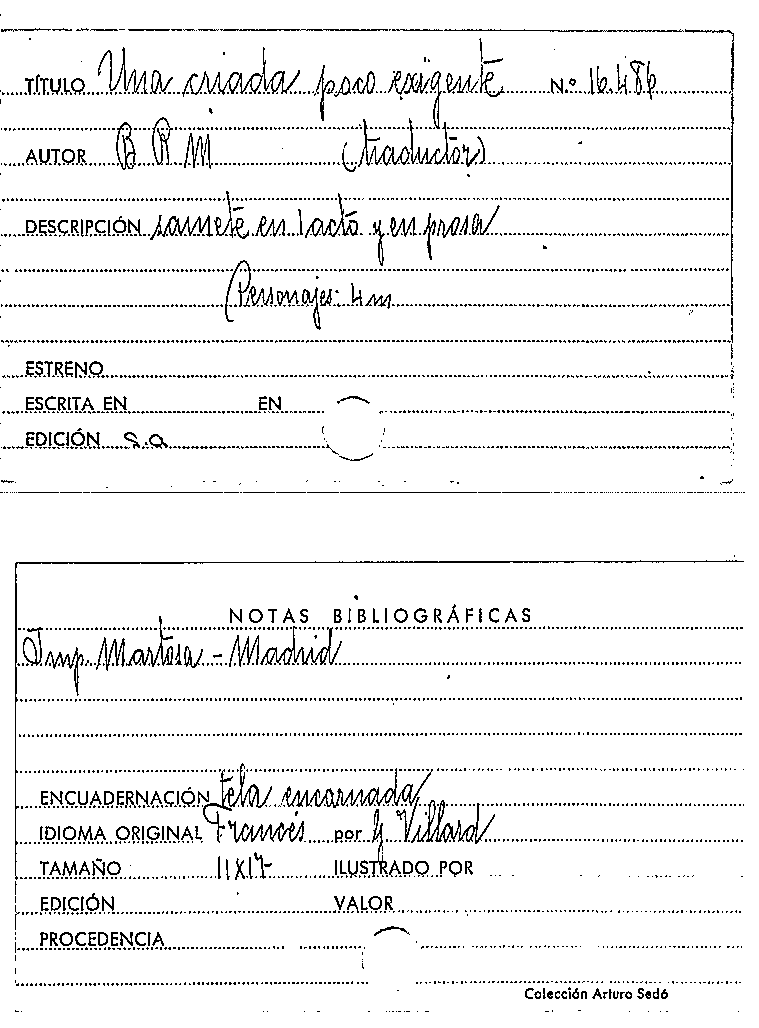 TÍTULO Una criada poco exigente N.º 16.486
AUTOR B R M (traductor)
DESCRIPCIÓN sainete en 1 acto y en prosa
(Personajes: 4 m
ESTRENO
ESCRITA EN EN
EDICIÓN s.a
NOTAS BIBLIOGRÁFICAS
Imp. Martosa - Madrid
ENCUADERNACIÓN tela encarnada
IDIOMA ORIGINAL Francés por G Villard
TAMAÑO 11X17 ILUSTRADO POR
EDICIÓN VALOR
PROCEDENCIA
Colección Arturo Sedó